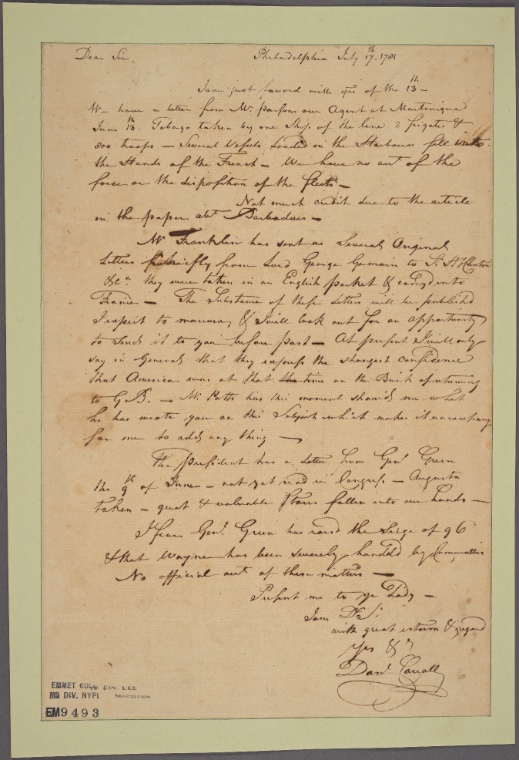 Dear Sir, Philadelphia July 17th, 1781
I am just favord with yrs of the 13th —
We have a letter from Mr. Parsons our Agent at Martinique
June 13th. Tobago taken by one Ship of the line 2 frigates &
800 troops — Several Vessels loaded in the Harbour fell into
the Hands of the French — We have no acct of the
force or the disposition of the fleets —
Not much credit due to the article
in the paper abt Barbadoes —
Mr Franklin has sent us Several Original
Letters from Lord George Germain to Sr H Clinton
&ca they were taken in an English packet & carryd into
France — The Substance of these Letters will be published
I expect to morrow, & I will look out for an opportunity
to send it to you before post — At present I will only
say in General that they express the strongest confidence
that America were at that time on the Brink of returning
to G. B. — Mr. has this moment shewed me what
he has wrote you on this Subject which makes it unnecessary
for me to add any thing —
The President has a letter from Genl Green
the 9th of June — not yet read in Congress — Augusta
taken — great & valuable Stores fallen into our hands —
I fear Genl. Green has raisd the Seige of 96
& that Wayne has been severely handled by Cornwallis
No official acct of these matters —
Present me to yr Lady —
I am Dr Sr.
with great esteem & regard
Yrs &ca
Danl Carroll
EMMET COLL
MS DIV. NYPL
EM9493